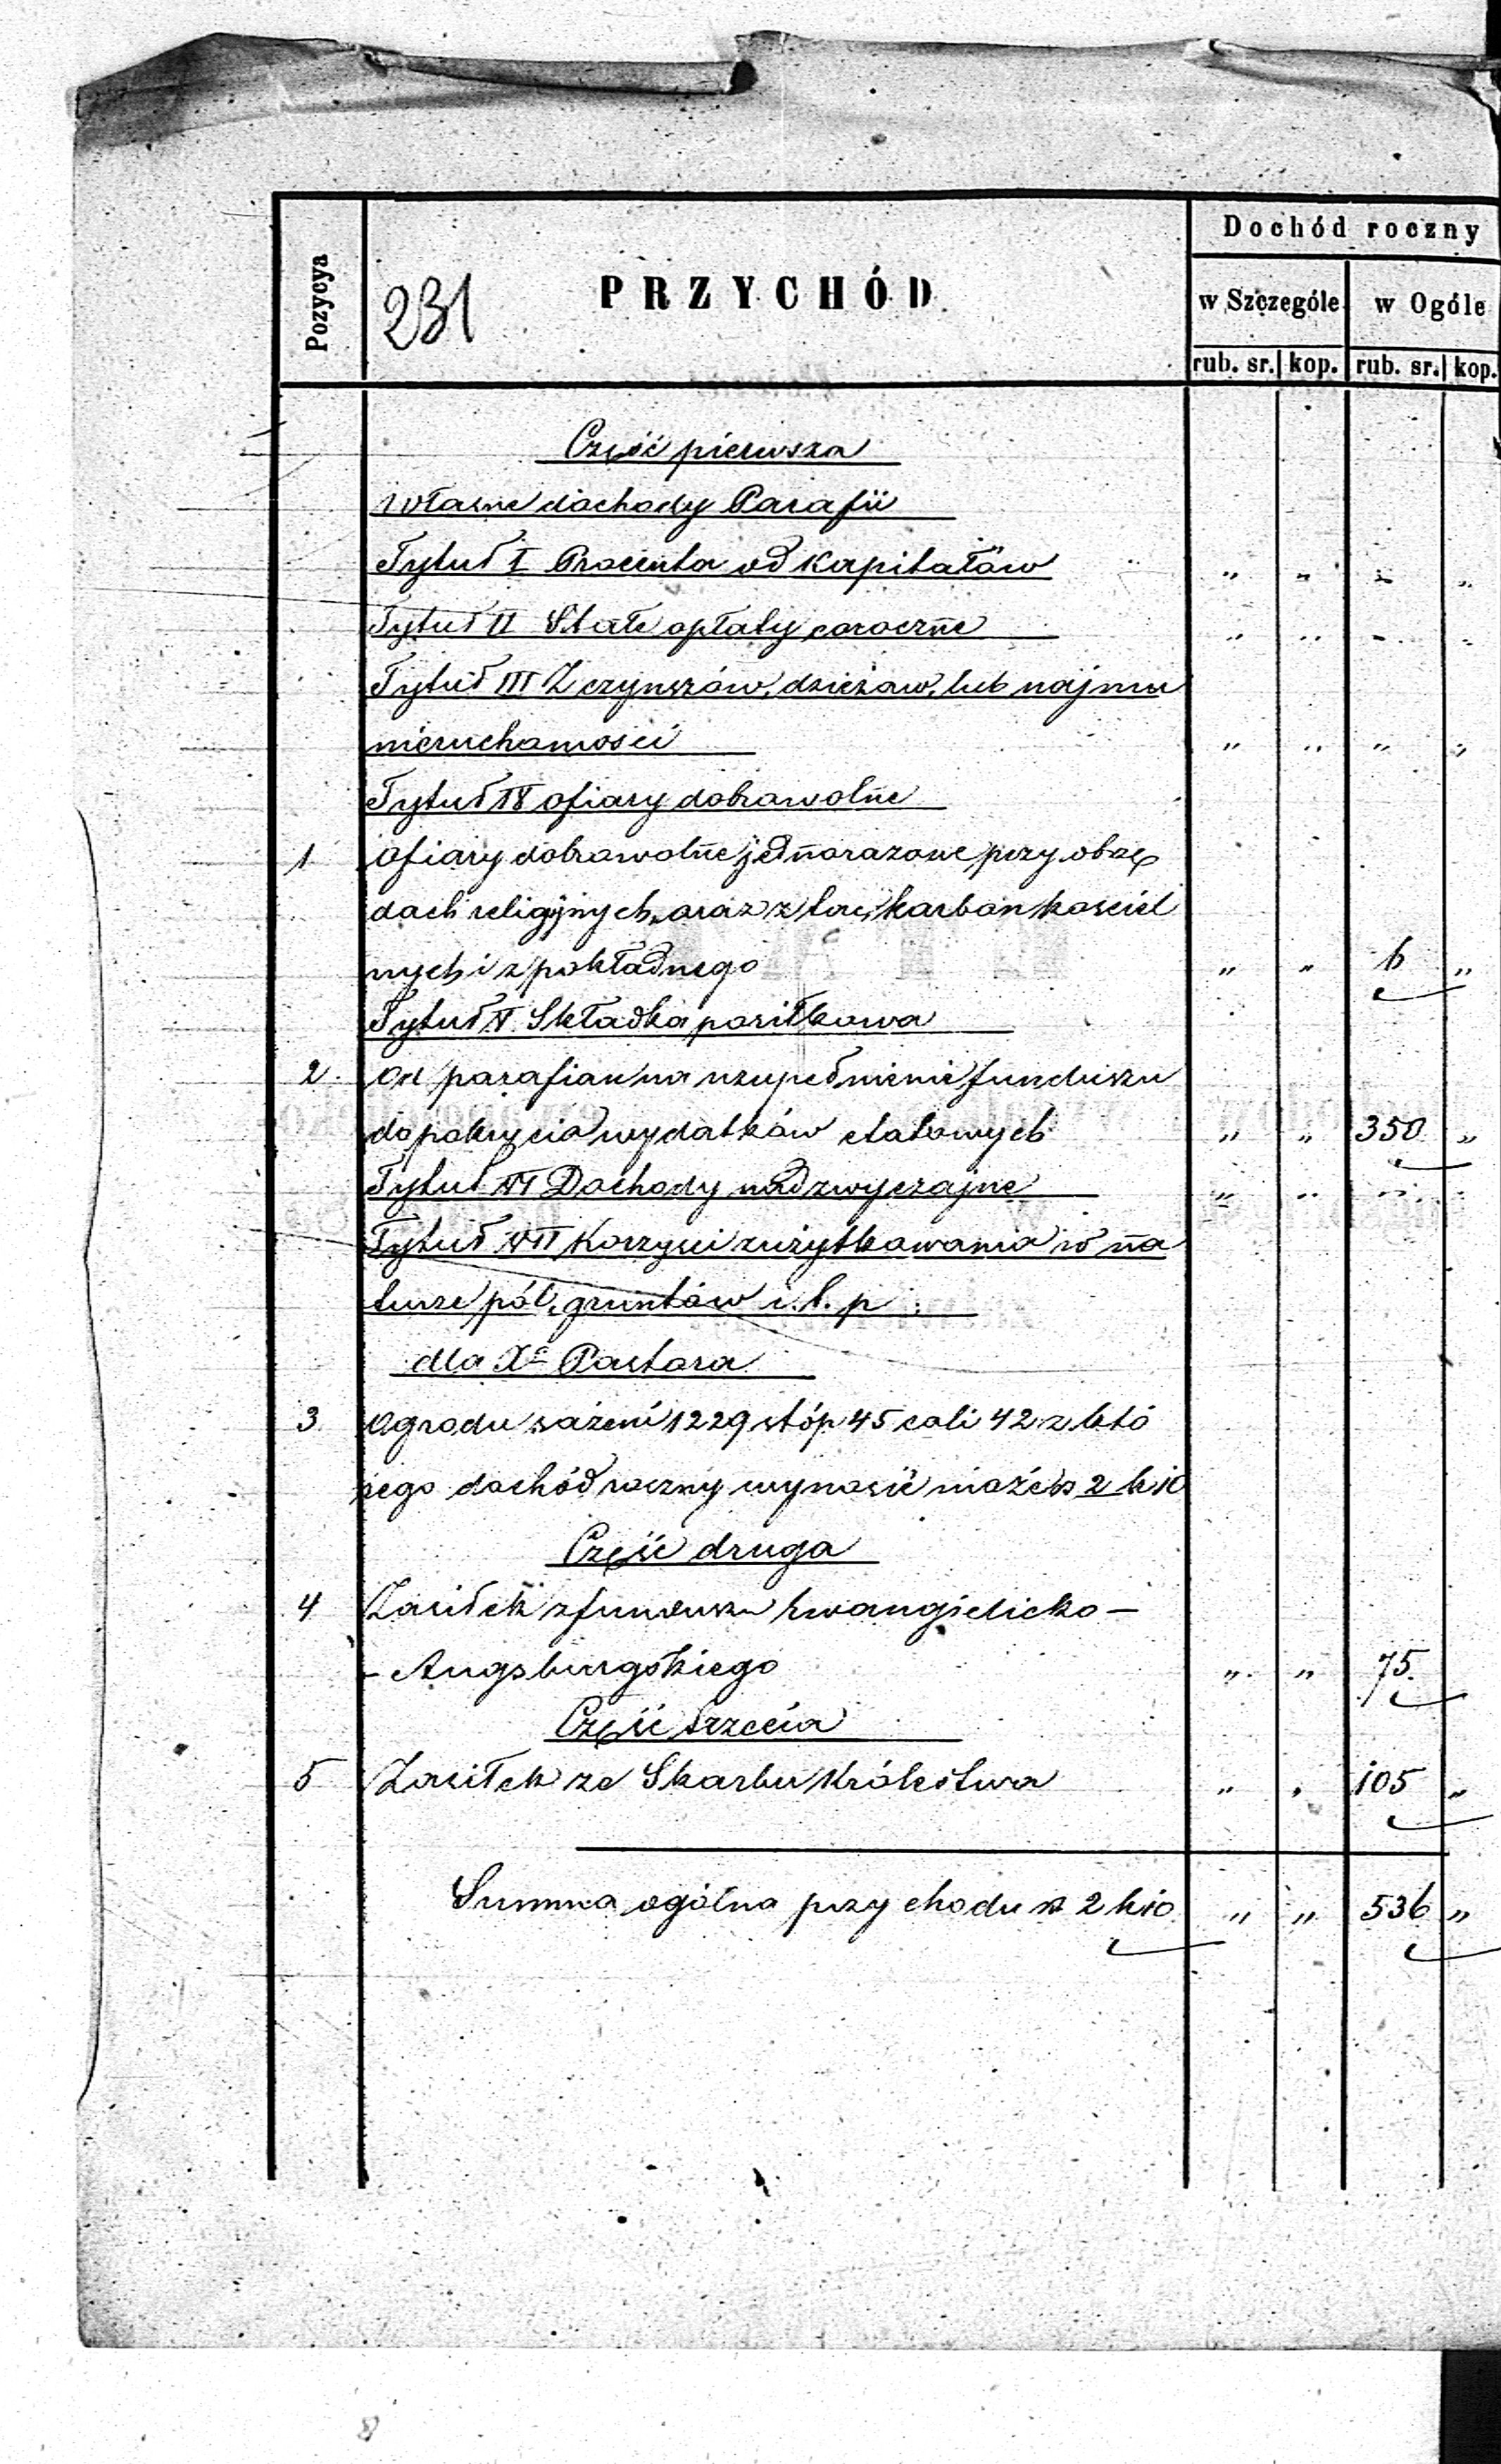 Dochód roczny
Pozycya 231 PRZYCHÓD. w Szczególe w Ogóle
rub. sr. kop. rub. sr. kop.
Część pierwsza
Własne dochody Parafii
Tytuł I Procenta od Kapitałów " " " "
Tytuł II Stałe opłaty coroczne " " " "
Tytuł III Z czynszów, dzierżaw, lub najmu
nieruchomości " " " "
Tytuł IV ofiary dobrowolne
1 Ofiary dobrowolne jednorazowe przy obrzę
dach religijnych, oraz z tac, karbon kościel
nych i z pokładnego " " 6 "
Tytuł V Składka posiłkowa
2. Od parafian na uzupełnienie funduszu
do pokrycia wydatków etatowych " " 350 "
Tytuł VI Dochody nadzwyczajne " " " "
Tytuł VII Korzyści z użytkowania w na
turze pól, gruntów i. t. p.
dla Xa Pastora
3. Ogrodu sażeni 1229 stóp 45 cali 42 z któ
rego dochód roczny wynosić może rs 2 k 10
Część druga
4 Zasiłek z funduszu Ewangielicko —
- Augsburgskiego " " 75.
Część trzecia
5 Zasiłek ze Skarbu Królestwa " " 105 "
Summa ogólna przychodu rs 2 k 10 " " 536 "